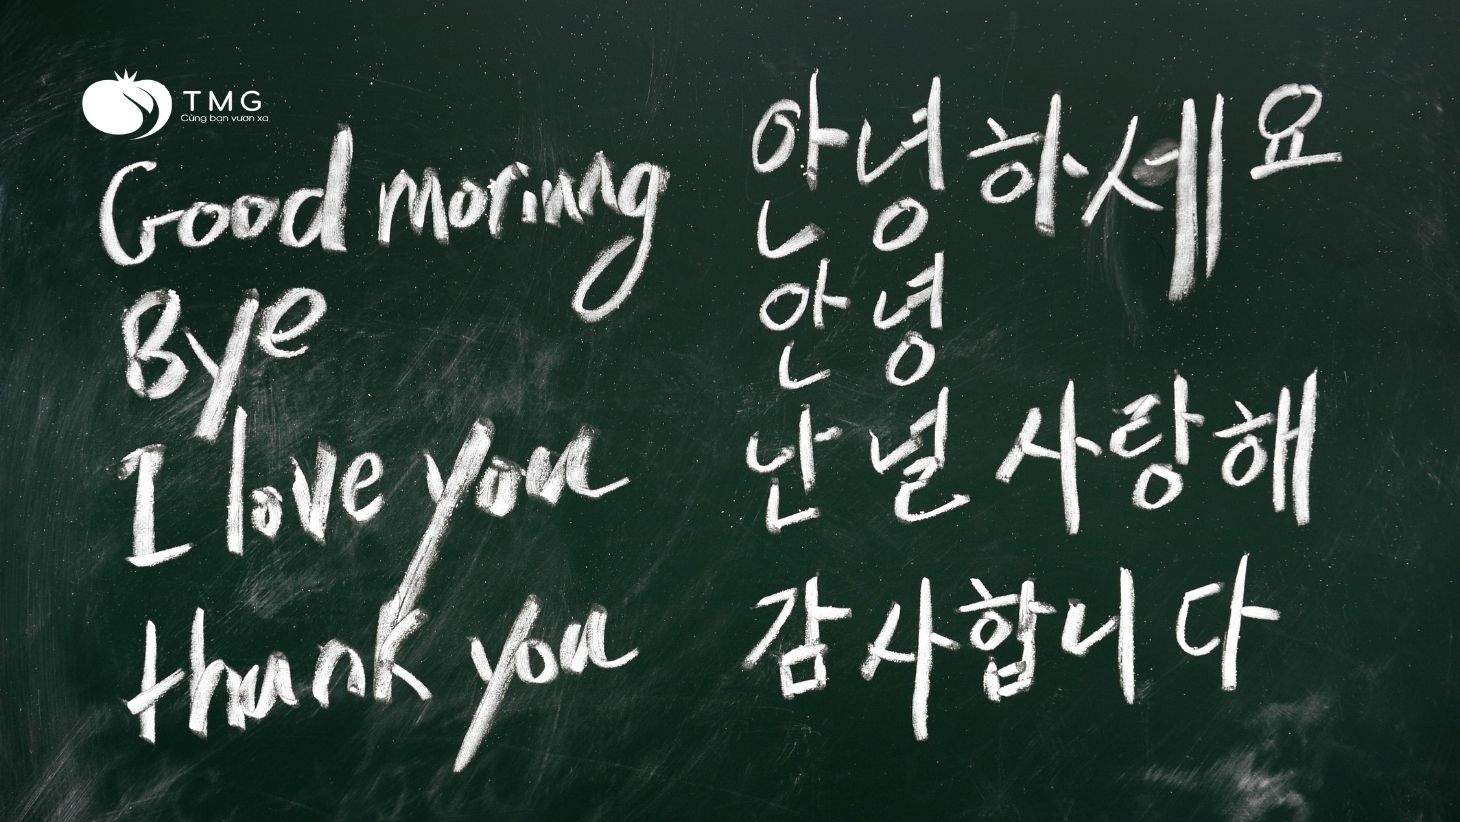 TMG
Cùng bạn vươn xa
Good morinng 안녕하세요
Bye 안녕
I love you 난 널 사랑해
thank you 감사합니다